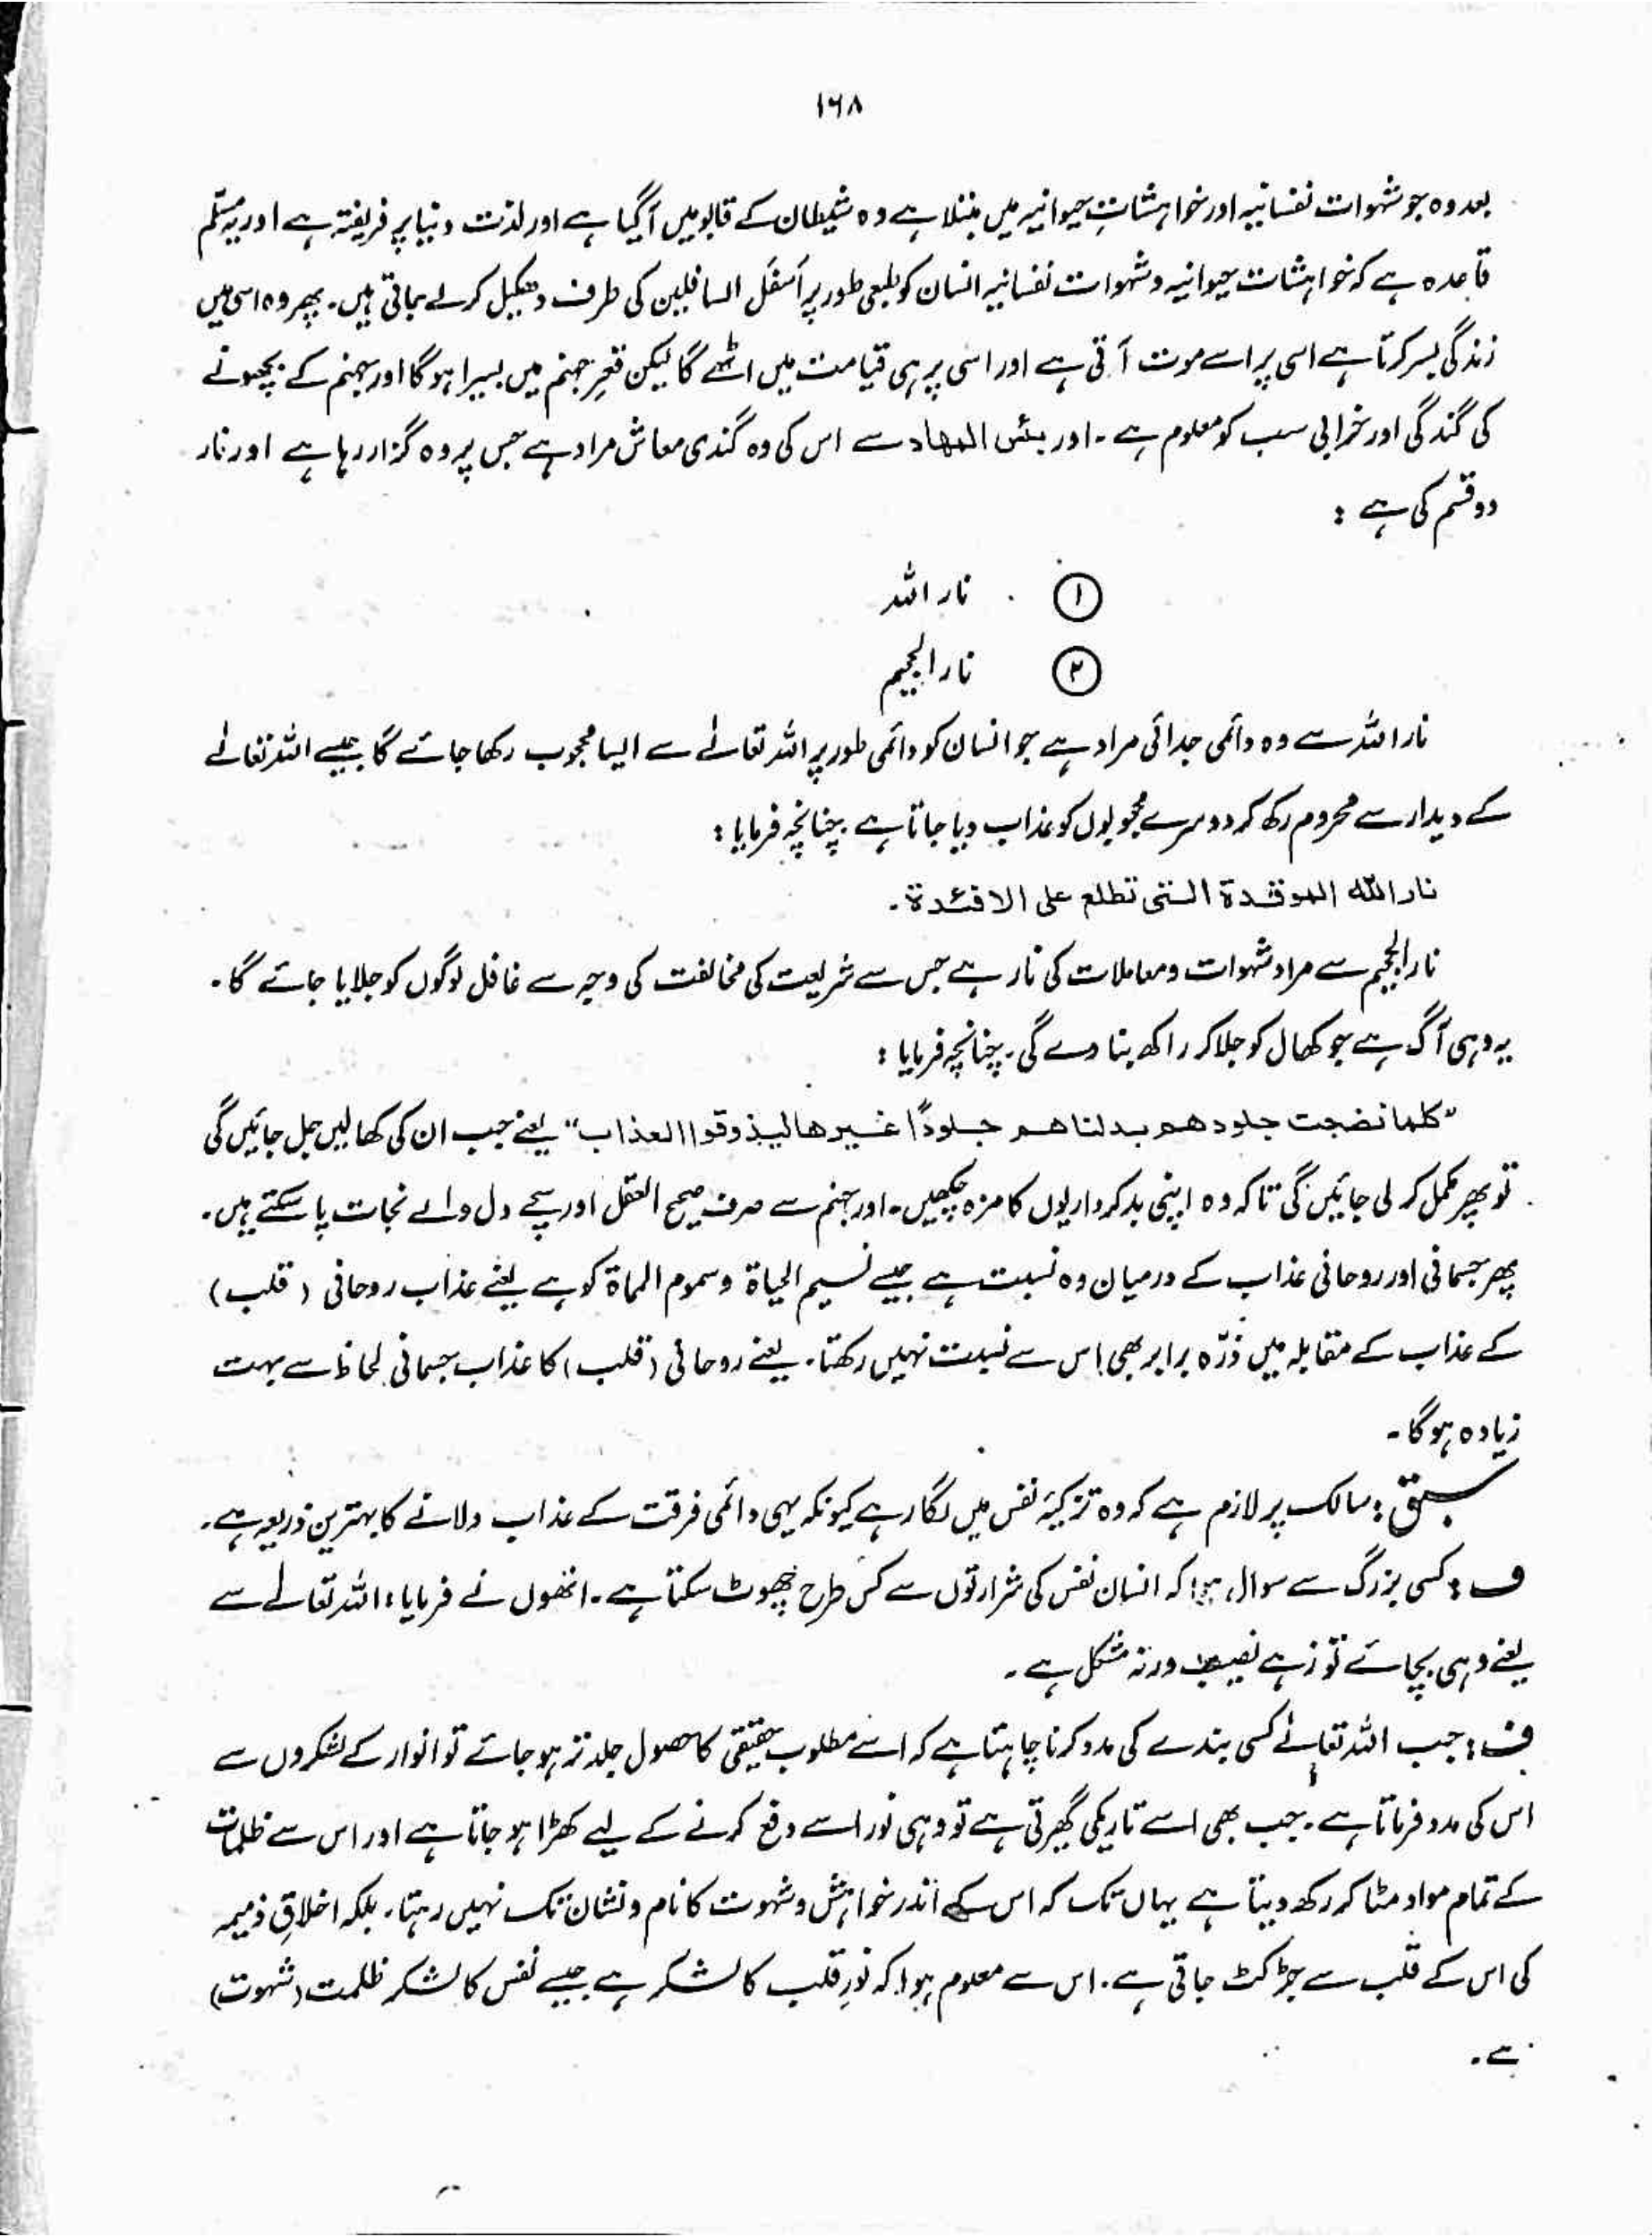 ۱۶۸
بعد وہ جو شہوات نفسانیہ اور خواہشاتِ حیوانیہ میں مبتلا ہے وہ شیطان کے قابو میں آگیا ہے اور لذت دنیا پر فریفتہ ہے اور یہ مسلم
قاعدہ ہے کہ خواہشات حیوانیہ و شہوات نفسانیہ انسان کو طبعی طور پر اَسفَل السافلین کی طرف دھکیل کر لے جاتی ہیں۔ پھر وہ اسی میں
زندگی بسر کرتا ہے اسی پر اسے موت آتی ہے اور اسی پر ہی قیامت میں اٹھے گا لیکن قعرِ جہنم میں بسیرا ہوگا اور جہنم کے بچھونے
کی گندگی اور خرابی سب کو معلوم ہے۔ اور بئس المهاد سے اس کی وہ گندی معاش مراد ہے جس پر وہ گزار رہا ہے اور نار
دو قسم کی ہے :
① نار اللہ
② نار الجحیم
نار اللہ سے وہ دائمی جدائی مراد ہے جو انسان کو دائمی طور پر اللہ تعالےٰ سے ایسا محجوب رکھا جائے گا جیسے اللہ تعالےٰ
کے دیدار سے محروم رکھ کر دوسرے محجوبوں کو عذاب دیا جاتا ہے۔ چنانچہ فرمایا :
نار الله الموقدة التی تطلع علی الافئدة۔
نار الجحیم سے مراد شہوات و معاملات کی نار ہے جس سے شریعت کی مخالفت کی وجہ سے غافل لوگوں کو جلایا جائے گا۔
یہ وہی آگ ہے جو کھال کو جلا کر راکھ بنا دے گی۔ چنانچہ فرمایا :
"کلما نضجت جلودهم بدلناهم جلودًا غیرها لیذوقوا العذاب" یعنے جب ان کی کھالیں جل جائیں گی
تو پھر مکمل کر لی جائیں گی تاکہ وہ اپنی بدکرداریوں کا مزہ چکھیں۔ اور جہنم سے صرف صحیح العقل اور سچے دل والے نجات پا سکتے ہیں۔
پھر جسمانی اور روحانی عذاب کے درمیان وہ نسبت ہے جیسے نسیم الحیاۃ و سموم المماۃ کو ہے یعنے عذاب روحانی (قلب)
کے عذاب کے مقابلہ میں ذرّہ برابر بھی اس سے نسبت نہیں رکھتا۔ یعنے روحانی (قلب) کا عذاب جسمانی لحاظ سے بہت
زیادہ ہوگا۔
سبق : سالک پر لازم ہے کہ وہ تزکیۂ نفس میں لگا رہے کیونکہ یہی دائمی فرقت کے عذاب دلانے کا بہترین ذریعہ ہے۔
ف : کسی بزرگ سے سوال ہوا کہ انسان نفس کی شرارتوں سے کس طرح چھوٹ سکتا ہے۔ انھوں نے فرمایا : اللہ تعالےٰ سے
یعنے وہی بچائے تو زہے نصیب ورنہ مشکل ہے۔
ف : جب اللہ تعالےٰ کسی بندے کی مدد کرنا چاہتا ہے کہ اسے مطلوب حقیقی کا حصول جلد تر ہو جائے تو انوار کے لشکروں سے
اس کی مدد فرماتا ہے۔ جب بھی اسے تاریکی گھیرتی ہے تو وہی نور اسے دفع کرنے کے لیے کھڑا ہو جاتا ہے اور اس سے ظلمات
کے تمام مواد مٹا کر رکھ دیتا ہے یہاں تک کہ اس کے اندر خواہش و شہوت کا نام و نشان تک نہیں رہتا۔ بلکہ اخلاقِ ذمیمہ
کی اس کے قلب سے جڑ کٹ جاتی ہے۔ اس سے معلوم ہوا کہ نورِ قلب کا لشکر ہے جیسے نفس کا لشکر ظلمت (شہوت)
ہے۔